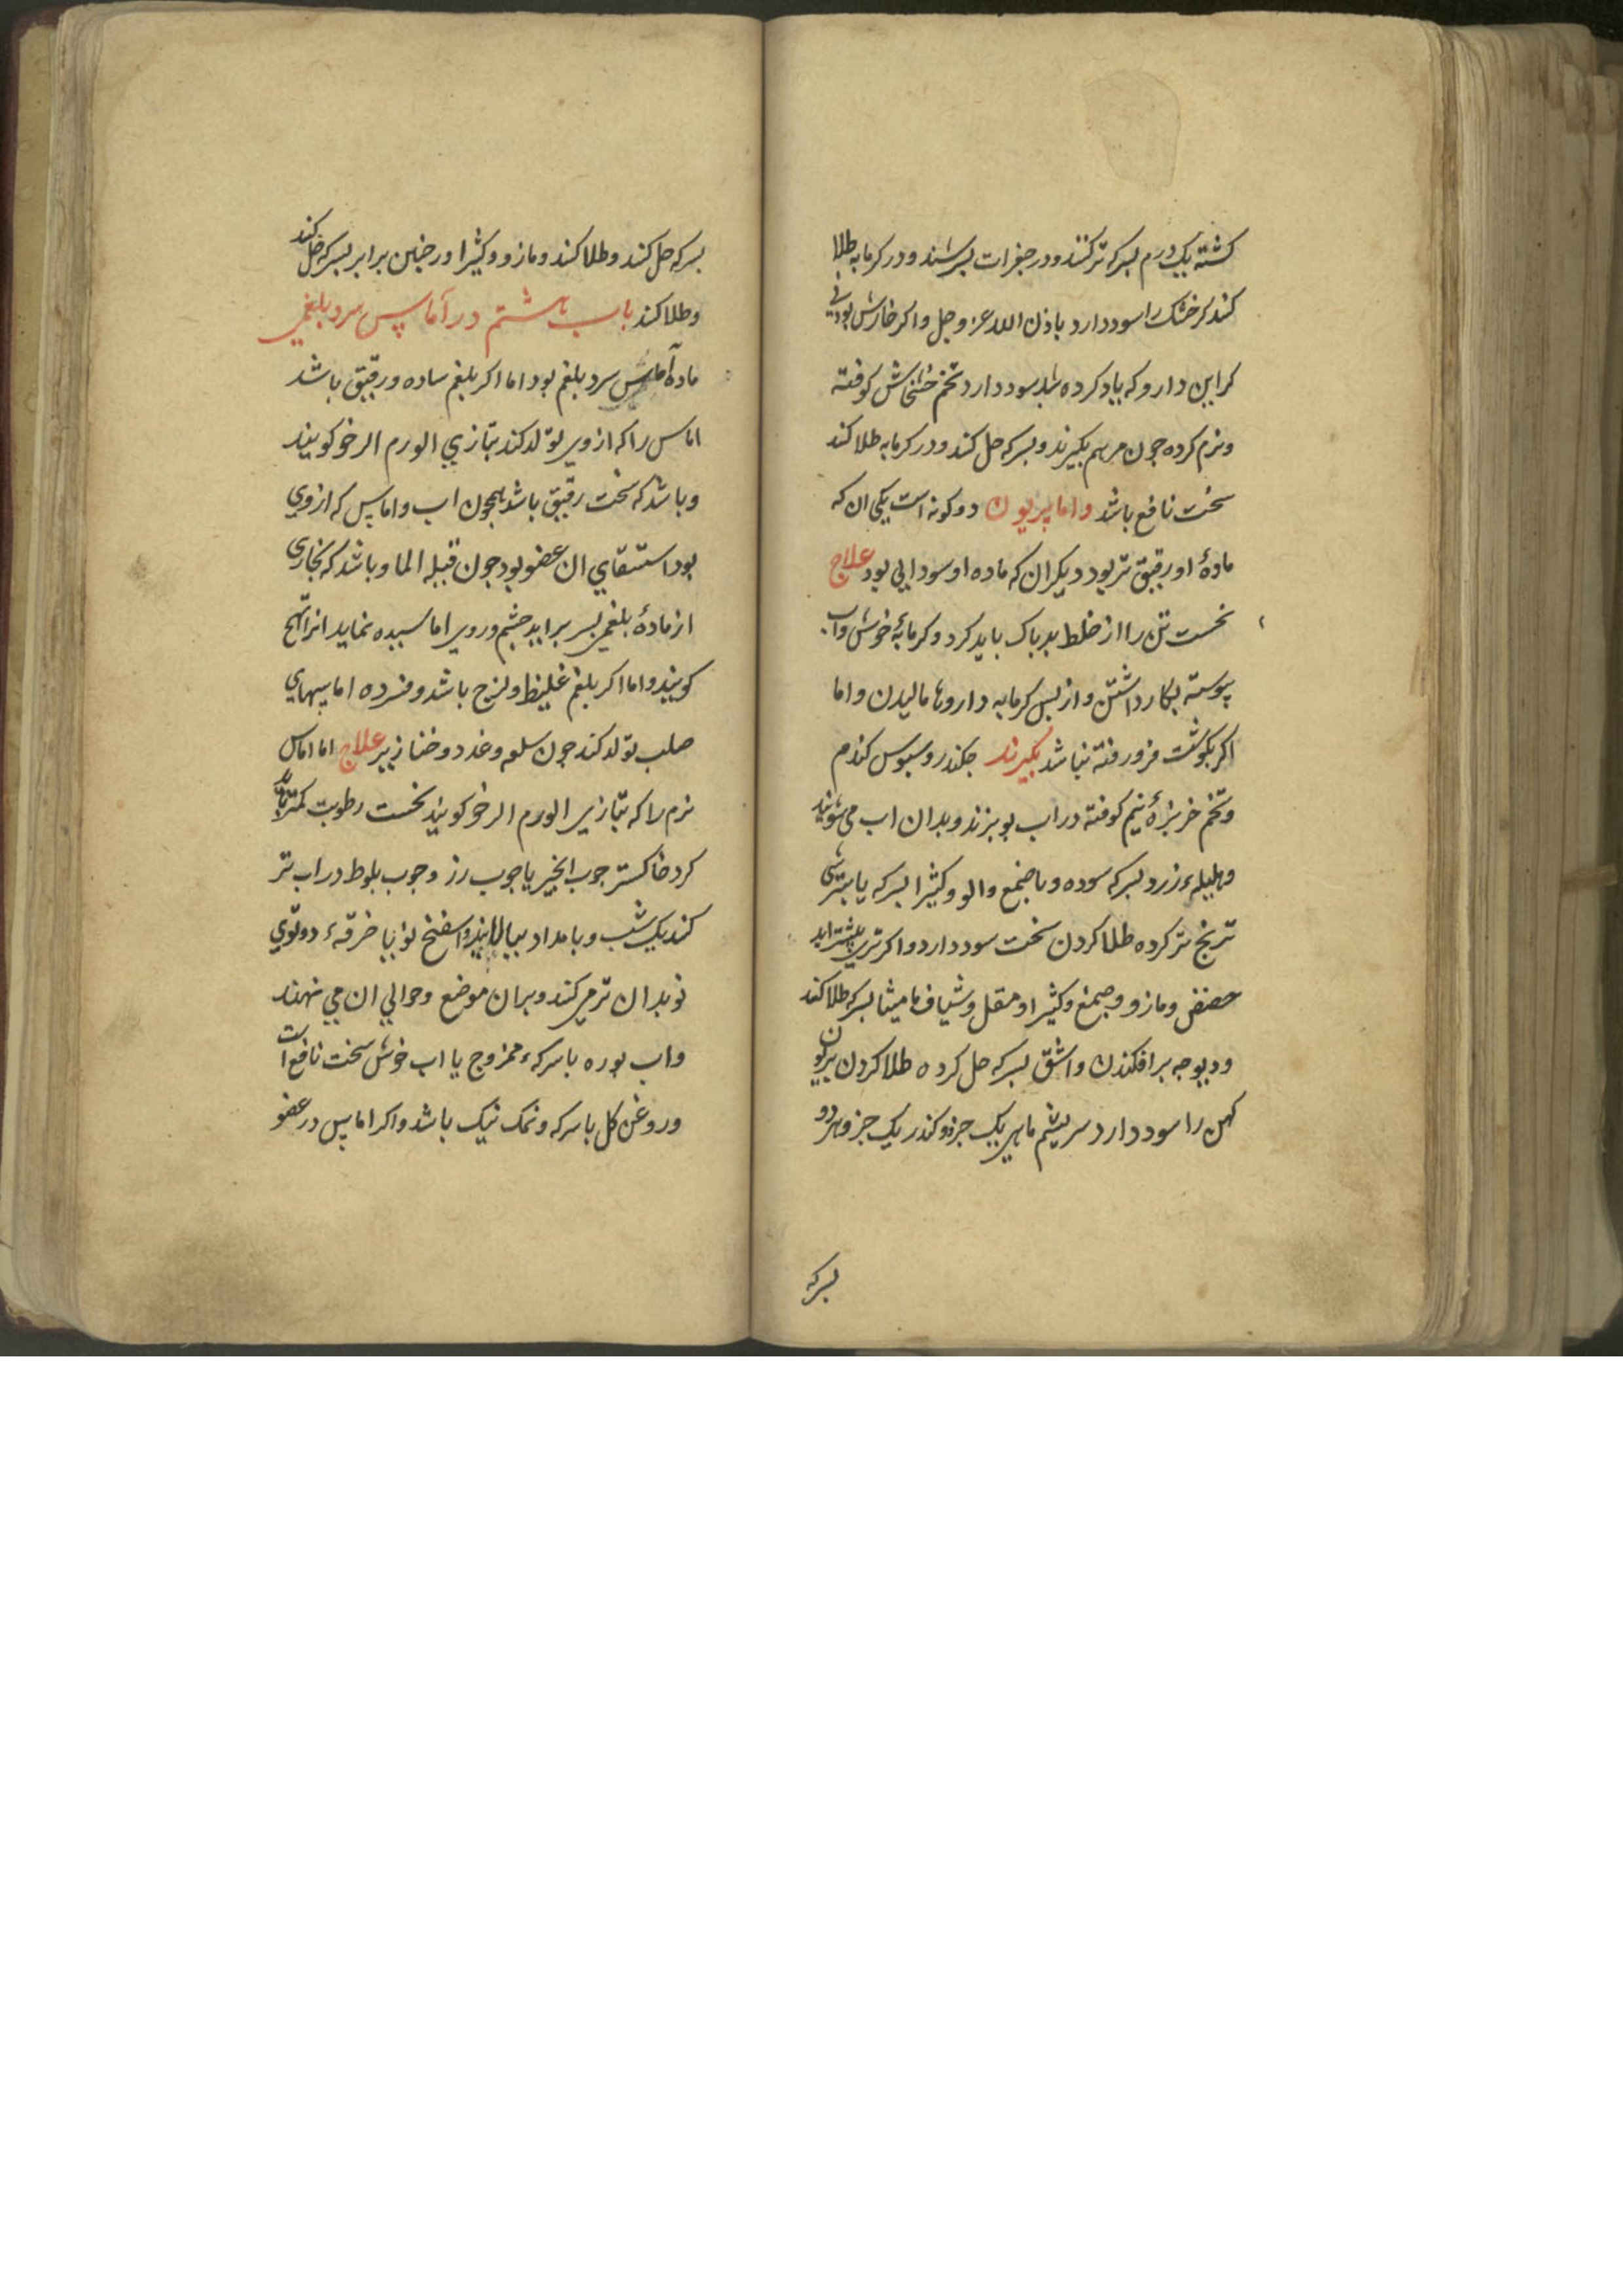 کشته یک درم بسرکه تر کنند و در جغرات بسرشند و در کرمابه طلا
کند کر خشک را سود دارد باذن الله عز و جل و اکر خارش بود بی
کر این دارو که یاد کرده شد سود دارد تخم خشخاش کوفته
و نرم کرده جون مرهم بکیرند و بسرکه حل کند و در کرمابه طلا کند
سخت نافع باشد و اما بریون دو کونه است یکی ان که
مادهٔ او رقیق تر بود دیکر ان که ماده او سودایی بود علاج
نخست تن را از خلط بد باک باید کرد و کرمابهٔ خوش و اب
پیوسته بکار داشتن و از بس کرمابه داروها مالیدن و اما
اکر بکوشت فرو رفته نباشد بکیرند جکندر و سبوس کندم
و تخم خربزهٔ نیم کوفته در اب بو بزند و بدان اب می شویند
و هلیلهٔ زرد بسرکه سوده و با صمغ والو و کثیرا بسرکه یا بترشی
ترنج تر کرده طلا کردن سخت سود دارد و اکر تری بیشتر اید
حضض و مازو و صمغ و کثیرا و مقل و شیاف مامیثا بسرکه طلا کند
و دیوجه برافکندن و اشق بسرکه حل کرده طلا کردن بریون
کهن را سود دارد سریشم ماهی یک جزو و کندر یک جزو هر دو
بسرکه
بسرکه حل کند و طلا کند و مازو و کثیرا و رخبین برابر بسرکه حل کند
و طلا کند باب هشتم در آماس سرد بلغمی
ماده آماس سرد بلغم بود اما اکر بلغم ساده و رقیق باشد
اماس را که از وی تولد کند بتازی الورم الرخو کویند
و باشد که سخت رقیق باشد همجون اب و اماس که از وی
بود استسقای ان عضو بود جون قیله الما و باشد که بخاری
از مادهٔ بلغمی بسر براید جشم و روی اماسیده نماید انرا تهبج
کویند و اما اکر بلغم غلیظ و لزج باشد و فسرده اماسهای
صلب تولد کند جون سلعه و غدد و خنازیر علاج اما اماس
نرم را که بتازی الورم الرخو کویند نخست رطوبت کمتر باید
کرد خاکستر جوب انجیر یا جوب رز و جوب بلوط در اب تر
کند یک شب و بامداد ببالایند و اسفنج نو یا خرقهٔ دو توی
نو بدان تر می کند و بر ان موضع و حوالی ان می نهند
و اب بوره با سرکهٔ ممزوج یا اب خوش سخت نافع است
و روغن کل با سرکه و نمک نیک باشد و اکر اماس در عضو